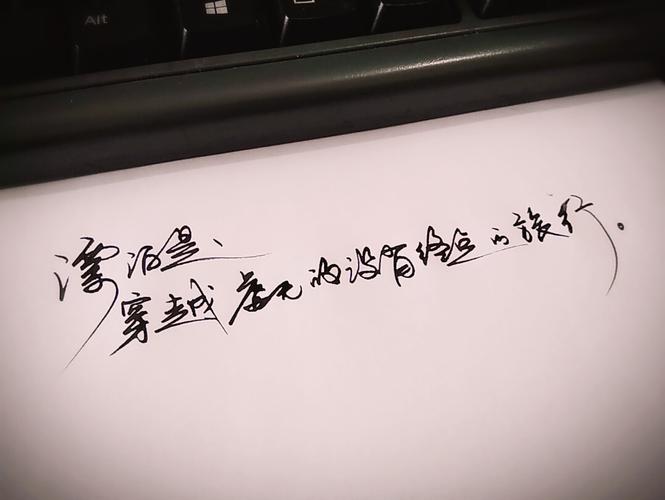 Alt
漂泊是、
穿越虚无的没有终点的旅行。